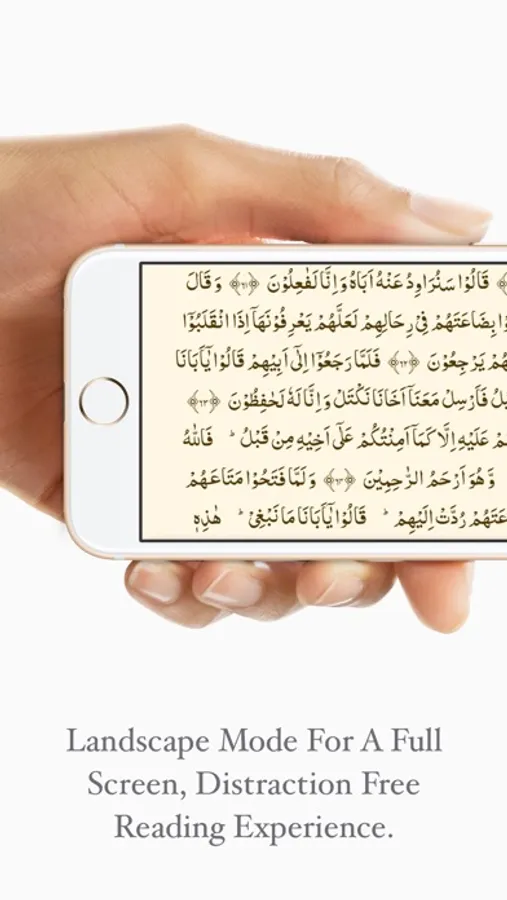 قَالُوۡا سَنُرَاوِدُ عَنۡهُ اَبَاهُ وَاِنَّا لَفٰعِلُوۡنَ ﴿۶۱﴾ وَ قَالَ
بِضَاعَتَهُمۡ فِىۡ رِحَالِهِمۡ لَعَلَّهُمۡ يَعۡرِفُوۡنَهَاۤ اِذَا انْقَلَبُوۡۤا
يَرۡجِعُوۡنَ ﴿۶۲﴾ فَلَمَّا رَجَعُوۡۤا اِلٰٓى اَبِيۡهِمۡ قَالُوۡا يٰۤاَبَانَا
فَاَرۡسِلۡ مَعَنَاۤ اَخَانَا نَكۡتَلۡ وَاِنَّا لَهٗ لَحٰفِظُوۡنَ ﴿۶۳﴾
عَلَيۡهِ اِلَّا كَمَاۤ اَمِنۡتُكُمۡ عَلٰٓى اَخِيۡهِ مِنۡ قَبۡلُ ؕ فَاللّٰهُ
وَّهُوَ اَرۡحَمُ الرّٰحِمِيۡنَ ﴿۶۴﴾ وَلَمَّا فَتَحُوۡا مَتَاعَهُمۡ
رُدَّتۡ اِلَيۡهِمۡ ؕ قَالُوۡا يٰۤاَبَانَا مَا نَبۡغِىۡ ؕ هٰذِهٖ
Landscape Mode For A Full
Screen, Distraction Free
Reading Experience.